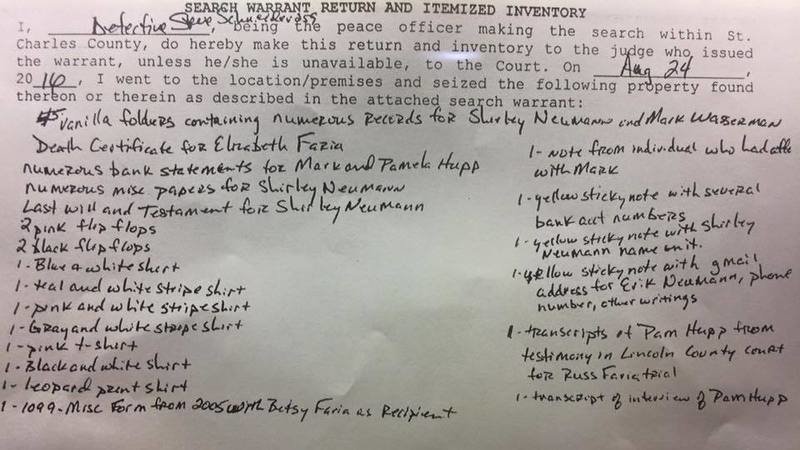 SEARCH WARRANT RETURN AND ITEMIZED INVENTORY
I, Detective Steve, being the peace officer making the search within St.
Charles County, do hereby make this return and inventory to the judge who issued
the warrant, unless he/she is unavailable, to the Court. On Aug 24,
2016, I went to the location/premises and seized the following property found
thereon or therein as described in the attached search warrant:
5 vanilla folders containing numerous records for Shirley Neumann and Mark Wasserman
Death Certificate for Elizabeth Faria
numerous bank statements for Mark and Pamela Hupp
numerous misc papers for Shirley Neumann
Last will and Testament for Shirley Neumann
2 pink flip flops
2 black flip flops
1- Blue & white shirt
1- teal and white stripe shirt
1- pink and white stripe shirt
1- Gray and white stripe shirt
1- pink t-shirt
1- Black and white shirt
1- leopard print shirt
1- 1099-Misc Form from 2005 with Betsy Faria as Recipient
1- note from individual who had
with Mark
1- yellow sticky note with several
bank acct numbers
1- yellow sticky note with Shirley
Neumann name on it.
1- yellow sticky note with gmail
address for Erik Neumann, phone
number, other writings
1- transcripts of Pam Hupp from
testimony in Lincoln County court
for Russ Faria trial
1- transcript of interview of Pam Hupp